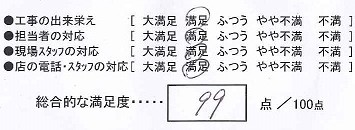 ●工事の出来栄え [ 大満足 満足 ふつう やや不満 不満 ]
●担当者の対応 [ 大満足 満足 ふつう やや不満 不満 ]
●現場スタッフの対応 [ 大満足 満足 ふつう やや不満 不満 ]
●店の電話・スタッフの対応 [ 大満足 満足 ふつう やや不満 不満 ]
総合的な満足度・・・・・ 99 点 /100点